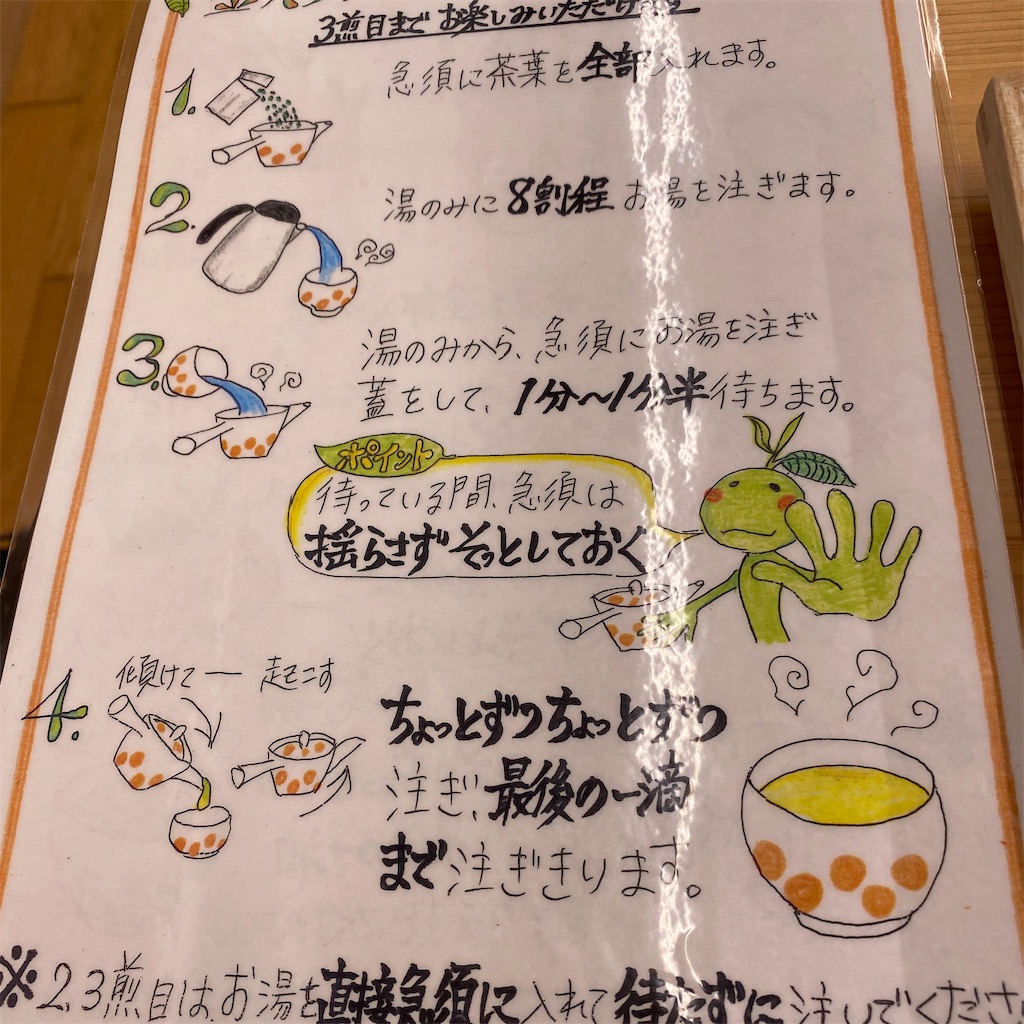 3煎目まで お楽しみいただけ
1. 急須に茶葉を全部入れます。
2. 湯のみに 8割程 お湯を注ぎます。
3. 湯のみから、急須にお湯を注ぎ
蓋をして、1分〜1分半待ちます。
ポイント
待っている間、急須は
揺らさず そっとしておく
4. 傾けてー 起こす
ちょっとずつちょっとずつ
注ぎ、最後の一滴
まで注ぎきります。
※2,3煎目は、お湯を直接急須に入れて 待たずに 注いでくださ